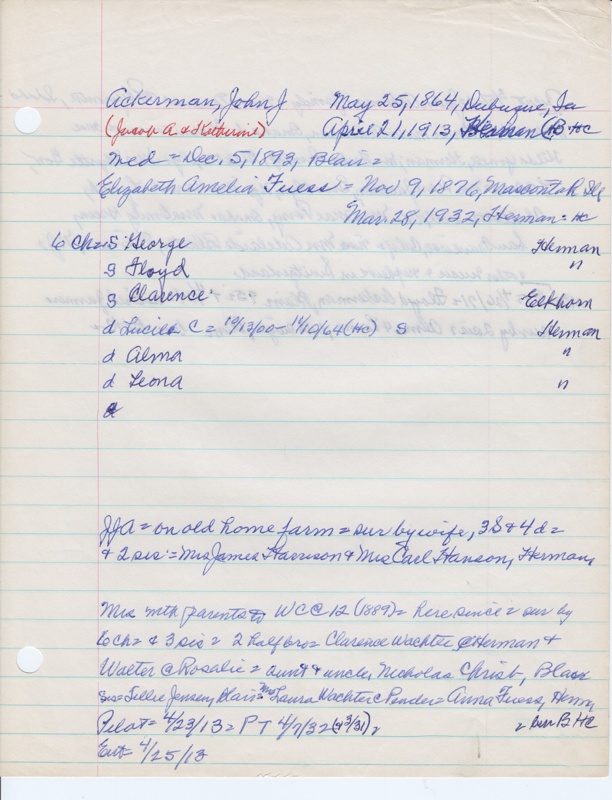 Ackerman, John J May 25, 1864, Dubuque, Ia
(Jacob A & Katherine) April 21, 1913, Herman B HC
Med = Dec. 5, 1893, Blair =
Elizabeth Amelia Fuess = Nov 9, 1876,
Mar. 28, 1932, Herman = HC
6 Ch = S George Herman
S Floyd "
S Clarence Elkhorn
d Lucile C = 10/13/00 - 11/10/64 (HC) S Herman
d Alma "
d Leona "
d
JJA = on old home farm = sur by wife, 3S & 4d =
& 2 sis = Mrs James Harrison & Mrs Carl Hanson, Herman,
Mrs with parents to WC @ 12 (1889) = here since = sur by
6 ch = & 3 sis = 2 half bro = Clarence Wachter @ Herman &
Walter @ Rosalie = aunt & uncle, Nicholas Christ, Blair
sis = Tillie Jensen, Blair = Mrs Laura Wachter @ Pender = Anna Fuess, Herm
Pilot = 4/23/13 = PT 4/7/32 (& 3/31) = = bur B HC
Ent = 4/25/13